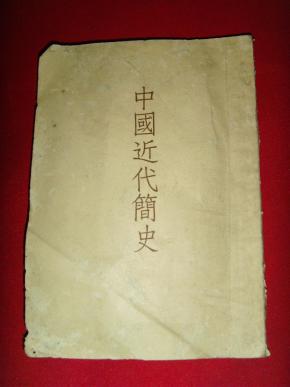 中國近代簡史